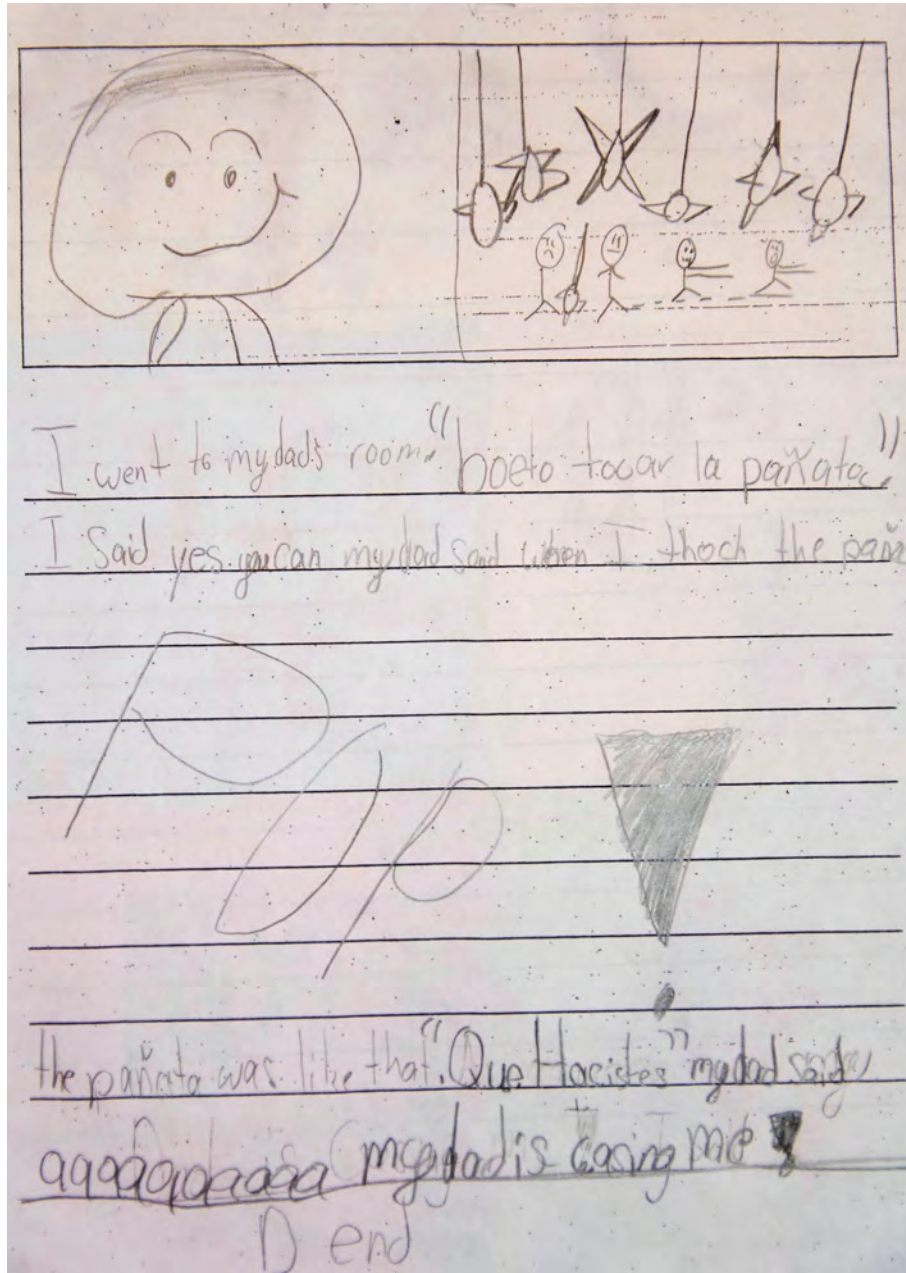 I went to my dad's room. "boeto tocar la pañata."
I said yes you can my dad said when I thoch the paña
Pop!
the pañata was like that. "Que ttacistes" my dad said
aaaaaaaaaa my dad is casing me!
D end